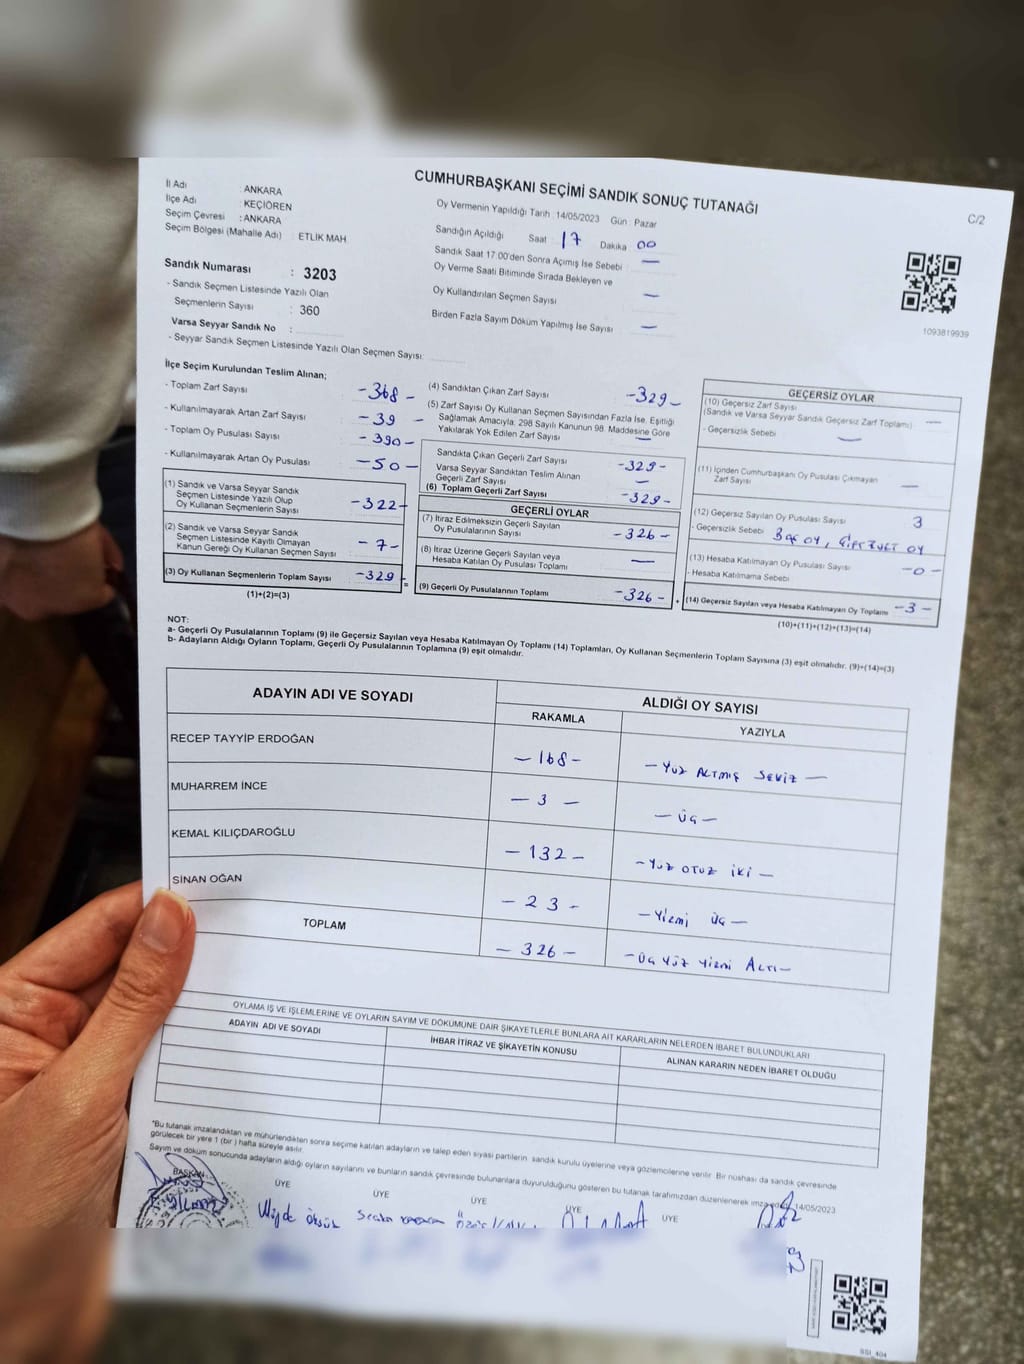 CUMHURBAŞKANI SEÇİMİ SANDIK SONUÇ TUTANAĞI
C/2
İl Adı : ANKARA
İlçe Adı : KEÇİÖREN
Seçim Çevresi : ANKARA
Seçim Bölgesi (Mahalle Adı) : ETLİK MAH.
Sandık Numarası : 3203
- Sandık Seçmen Listesinde Yazılı Olan
Seçmenlerin Sayısı : 360
Varsa Seyyar Sandık No :
- Seyyar Sandık Seçmen Listesinde Yazılı Olan Seçmen Sayısı:
Oy Vermenin Yapıldığı Tarih : 14/05/2023 Gün : Pazar
Sandığın Açıldığı Saat 17 Dakika 00
Sandık Saat 17.00'den Sonra Açımış İse Sebebi —
Oy Verme Saati Bitiminde Sırada Bekleyen ve
Oy Kullandırılan Seçmen Sayısı —
Birden Fazla Sayım Döküm Yapılmış İse Sayısı —
1093819939
İlçe Seçim Kurulundan Teslim Alınan;
- Toplam Zarf Sayısı -368-
- Kullanılmayarak Artan Zarf Sayısı -39-
- Toplam Oy Pusulası Sayısı -390-
- Kullanılmayarak Artan Oy Pusulası -50-
(1) Sandık ve Varsa Seyyar Sandık
Seçmen Listesinde Yazılı Olup
Oy Kullanan Seçmenlerin Sayısı -322-
(2) Sandık ve Varsa Seyyar Sandık
Seçmen Listesinde Kayıtlı Olmayan
Kanun Gereği Oy Kullanan Seçmen Sayısı -7-
(3) Oy Kullanan Seçmenlerin Toplam Sayısı -329-
(1)+(2)=(3)
(4) Sandıktan Çıkan Zarf Sayısı -329-
(5) Zarf Sayısı Oy Kullanan Seçmen Sayısından Fazla İse, Eşitliği
Sağlamak Amacıyla; 298 Sayılı Kanunun 98. Maddesine Göre
Yakılarak Yok Edilen Zarf Sayısı —
Sandıkta Çıkan Geçerli Zarf Sayısı -329-
Varsa Seyyar Sandıktan Teslim Alınan
Geçerli Zarf Sayısı —
(6) Toplam Geçerli Zarf Sayısı -329-
GEÇERLİ OYLAR
(7) İtiraz Edilmeksizin Geçerli Sayılan
Oy Pusulalarının Sayısı -326-
(8) İtiraz Üzerine Geçerli Sayılan veya
Hesaba Katılan Oy Pusulası Toplamı —
= (9) Geçerli Oy Pusulalarının Toplamı -326- +
GEÇERSİZ OYLAR
(10) Geçersiz Zarf Sayısı
(Sandık ve Varsa Seyyar Sandık Geçersiz Zarf Toplamı) —
- Geçersizlik Sebebi —
(11) İçinden Cumhurbaşkanı Oy Pusulası Çıkmayan
Zarf Sayısı —
(12) Geçersiz Sayılan Oy Pusulası Sayısı 3
- Geçersizlik Sebebi OY, OY
(13) Hesaba Katılmayan Oy Pusulası Sayısı -0-
- Hesaba Katılmama Sebebi
(14) Geçersiz Sayılan veya Hesaba Katılmayan Oy Toplamı -3-
(10)+(11)+(12)+(13)=(14)
NOT:
a- Geçerli Oy Pusulalarının Toplamı (9) ile Geçersiz Sayılan veya Hesaba Katılmayan Oy Toplamı (14) Toplamları, Oy Kullanan Seçmenlerin Toplam Sayısına (3) eşit olmalıdır. (9)+(14)=(3)
b- Adayların Aldığı Oyların Toplamı, Geçerli Oy Pusulalarının Toplamına (9) eşit olmalıdır.
ADAYIN ADI VE SOYADI ALDIĞI OY SAYISI
RAKAMLA YAZIYLA
RECEP TAYYİP ERDOĞAN -168- -YÜZ ALTMIŞ SEKİZ-
MUHARREM İNCE -3- -ÜÇ-
KEMAL KILIÇDAROĞLU -132- -YÜZ OTUZ İKİ-
SİNAN OĞAN -23- -YİRMİ ÜÇ-
TOPLAM -326- -ÜÇ YÜZ YİRMİ ALTI-
OYLAMA İŞ VE İŞLEMLERİNE VE OYLARIN SAYIM VE DÖKÜMÜNE DAİR ŞİKAYETLERLE BUNLARA AİT KARARLARIN NELERDEN İBARET BULUNDUKLARI
ADAYIN ADI VE SOYADI İHBAR İTİRAZ VE ŞİKAYETİN KONUSU ALINAN KARARIN NEDEN İBARET OLDUĞU
"Bu tutanak imzalandıktan ve mühürlendikten sonra seçime katılan adayların ve talep eden siyasi partilerin sandık kurulu üyelerine veya gözlemcilerine verilir. Bir nüshası da sandık çevresinde
görülecek bir yere 1 (bir) hafta süreyle asılır.
Sayım ve döküm sonucunda adayların aldığı oyların sayılarını ve bunların sandık çevresinde bulunanlara duyurulduğunu gösteren bu tutanak tarafımızdan düzenlenerek 14/05/2023
BAŞKAN ÜYE ÜYE ÜYE ÜYE ÜYE
SSI_404